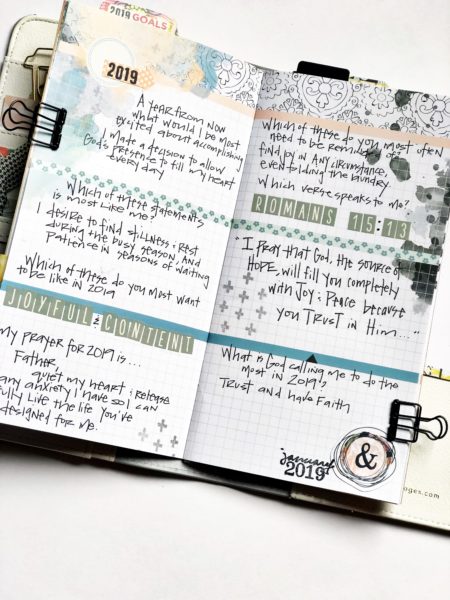 2019 GOALS
2019
A year from now
what would I be most
excited about accomplishing
I made a decision to allow
God's presence to fill my heart
every day
Which of these statements
is most like me?
I desire to find stillness & rest
during the busy season, and
patience in seasons of waiting
Which of these do you most want
to be like in 2019
JOYFUL & CONTENT
my prayer for 2019 is...
Father,
quiet my heart; release
any anxiety I have so I can
fully live the life you've
designed for me.
Which of these do you most often
need to be reminded of?
find joy in any circumstance,
even folding the laundry.
Which verse speaks to me?
ROMANS 15:13
"I pray that God, the source of
HOPE, will fill you completely
with Joy & Peace because
you Trust in Him..."
What is God calling me to do the
most in 2019?
Trust and have Faith
january
2019
&
ages.com